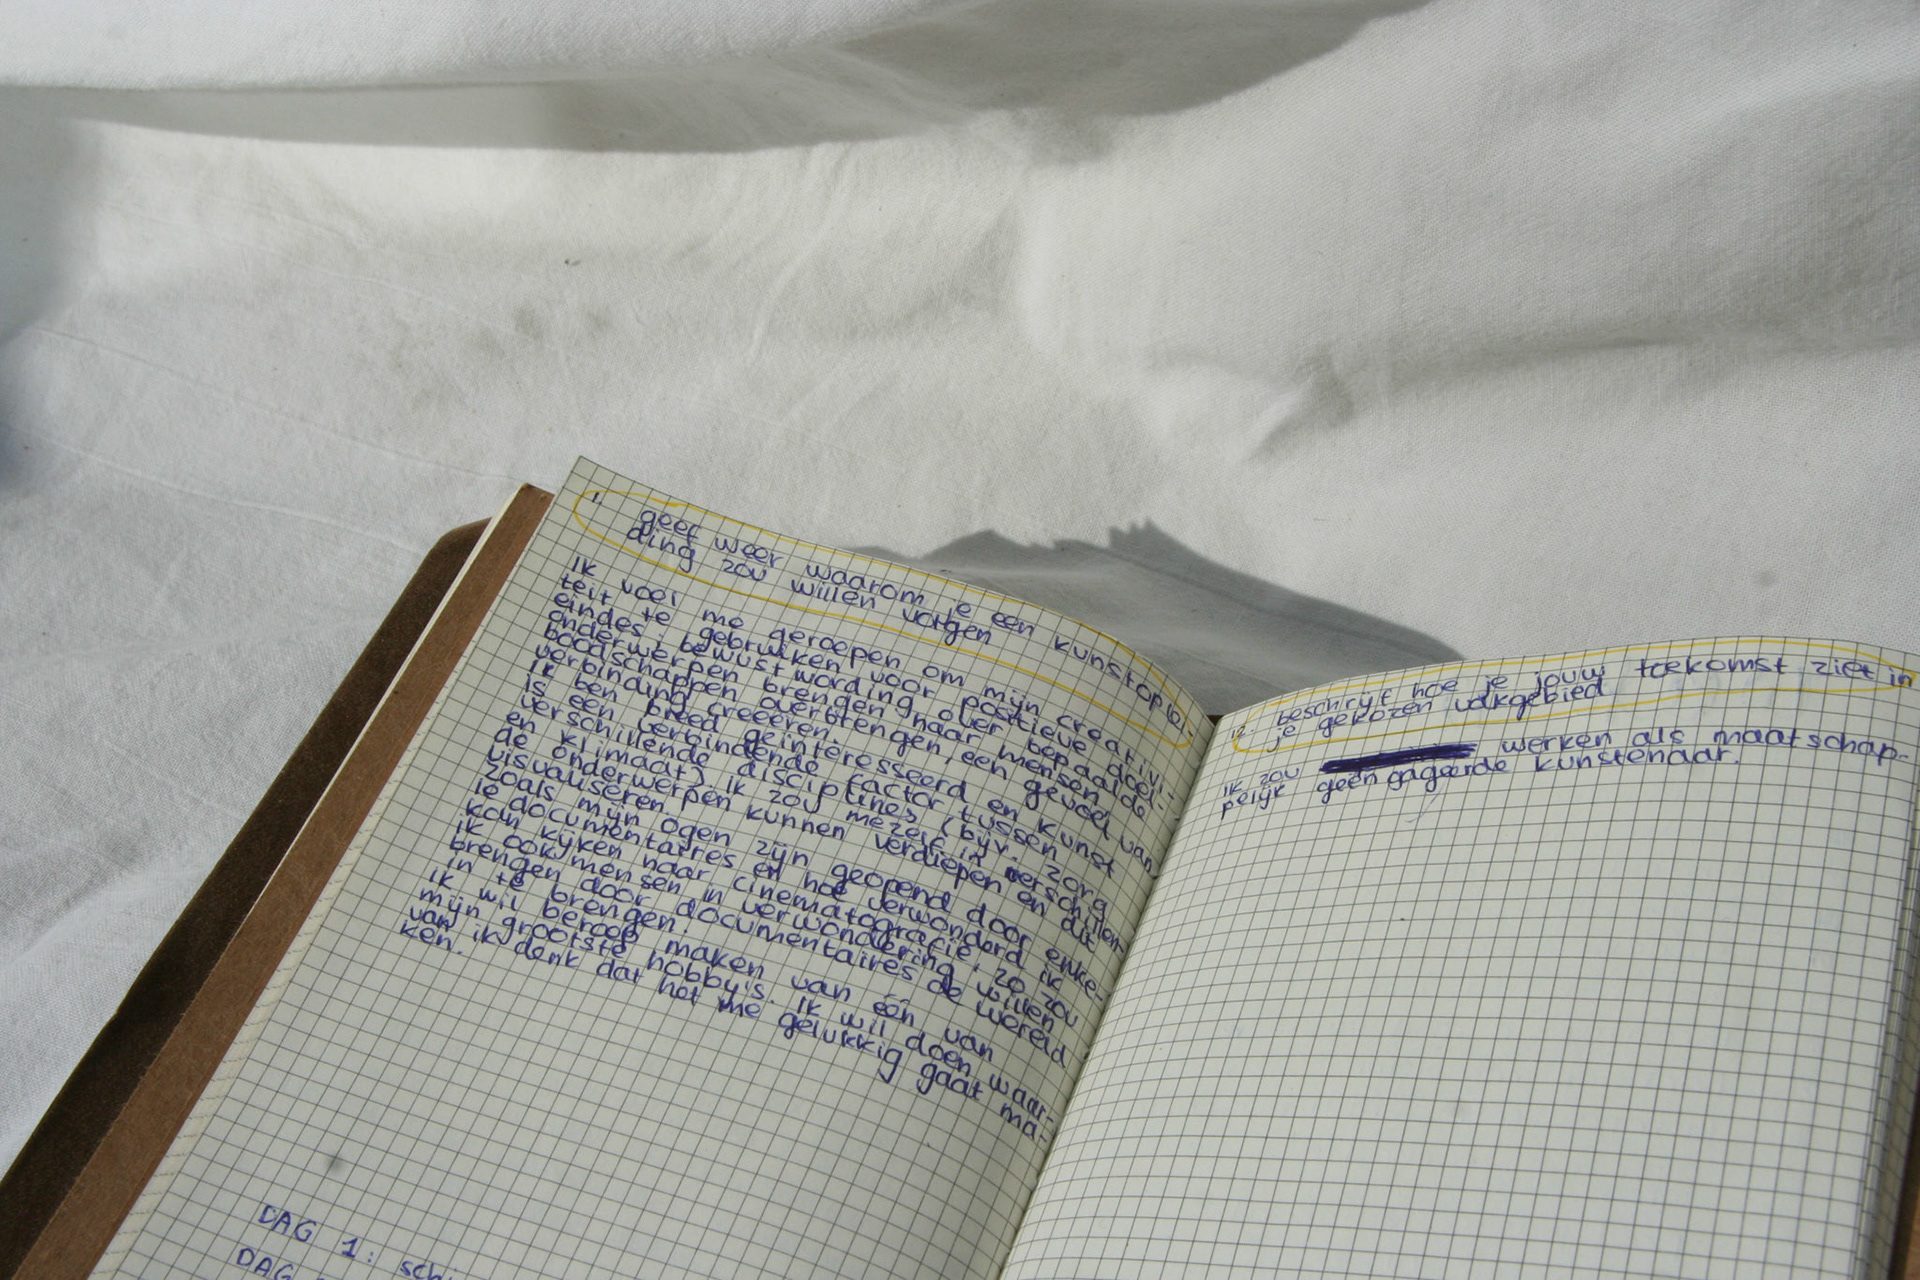 1.
geef weer waarom je een kunstoplei-
ding zou willen volgen
Ik voel me geroepen om mijn creativi-
teit te gebruiken voor positieve doel-
eindes, bewustwording over bepaalde
onderwerpen brengen naar mensen,
boodschappen overbrengen, een gevoel van
verbinding creëeren.
Ik ben breed geïnteresseerd en kunst
is een verbindende factor tussen
verschillende disciplines (bijv. zorg
en klimaat). Ik zou mezelf in verschillen-
de onderwerpen kunnen verdiepen en dit
visualiseren.
zoals mijn ogen zijn geopend door enke-
le documentaires en hoe verwonderd ik
kan kijken naar cinematografie, zo zou
ik ook mensen in verwondering willen
brengen door documentaires de wereld
in te brengen.
ik wil beroep maken van één van
mijn grootste hobby's. Ik wil doen waar-
van ik denk dat het me gelukkig gaat ma-
ken.
DAG 1:
DAG
12. beschrijf hoe je jouw toekomst ziet in
je gekozen vakgebied
ik zou werken als maatschap-
pelijk geëngageerde kunstenaar.